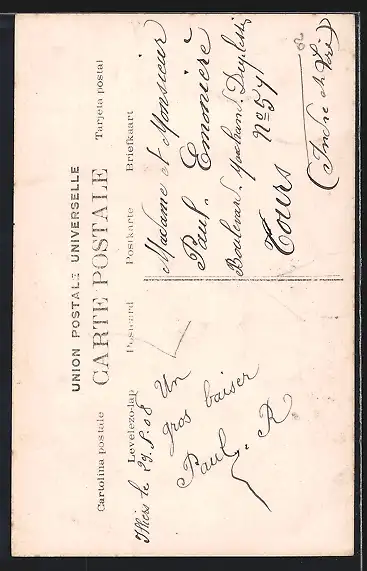 UNION POSTALE UNIVERSELLE
CARTE POSTALE
Cartolina postale
Tarjeta postal
Levelezo-lap
Postcard
Postkarte
Briefkaart
Illiers le 29.5.08
Un
gros baiser
Paul. R
Madame et Monsieur
Paul. Emonière
Boulevard.
No 57
Tours
(Indre et Loire)